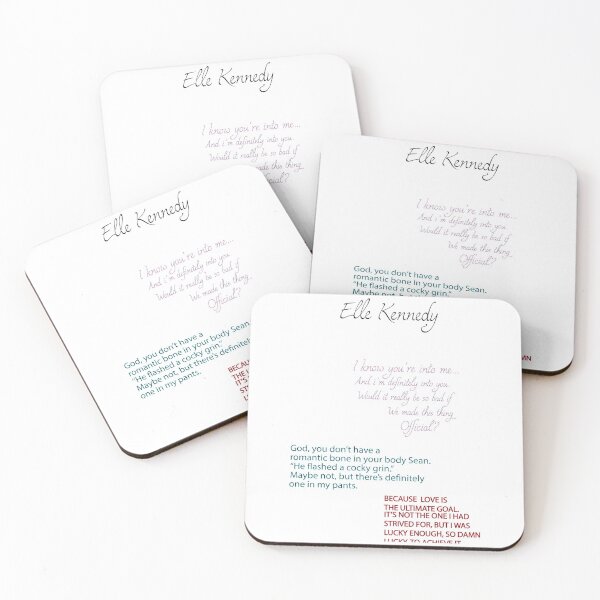 Elle Kennedy
I know you're into me...
And i'm definitely into you.
Would it really be so bad if
We made this thing...
Official?
Elle Kennedy
I know you're into me...
And i'm definitely into you.
Would it really be so bad if
We made this thing...
Official?
God, you don't have a
romantic bone in your body Sean.
"He flashed a cocky grin."
DAMN
Elle Kennedy
I know you're into me...
And i'm definitely into you.
Would it really be so bad if
We made this thing...
Official?
God, you don't have a
romantic bone in your body Sean.
"He flashed a cocky grin."
Maybe not, but there's definitely
one in my pants.
BECAUSE
THE
IT'S
STRIVED
Elle Kennedy
I know you're into me...
And i'm definitely into you.
Would it really be so bad if
We made this thing...
Official?
God, you don't have a
romantic bone in your body Sean.
"He flashed a cocky grin."
Maybe not, but there's definitely
one in my pants.
BECAUSE LOVE IS
THE ULTIMATE GOAL.
IT'S NOT THE ONE I HAD
STRIVED FOR, BUT I WAS
LUCKY ENOUGH, SO DAMN
LUCKY TO ACHIEVE IT